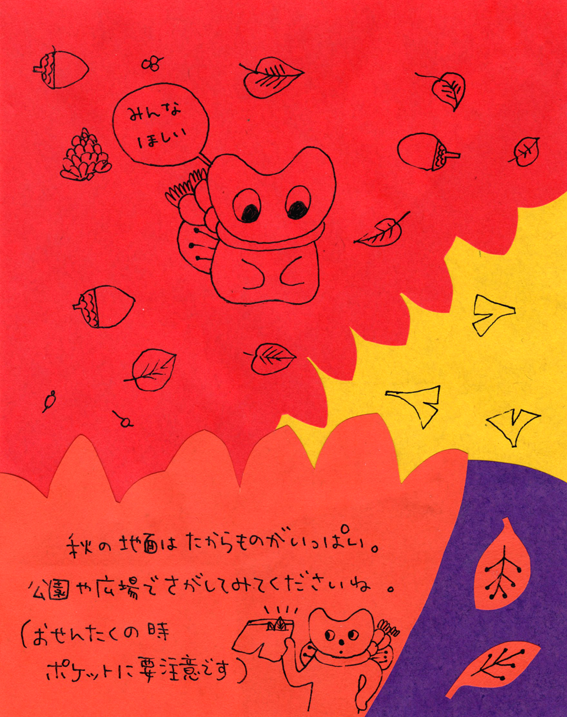 みんな
ほしい
秋の地面はたからものがいっぱい。
公園や広場でさがしてみてくださいね。
(おせんたくの時
ポケットに要注意です)